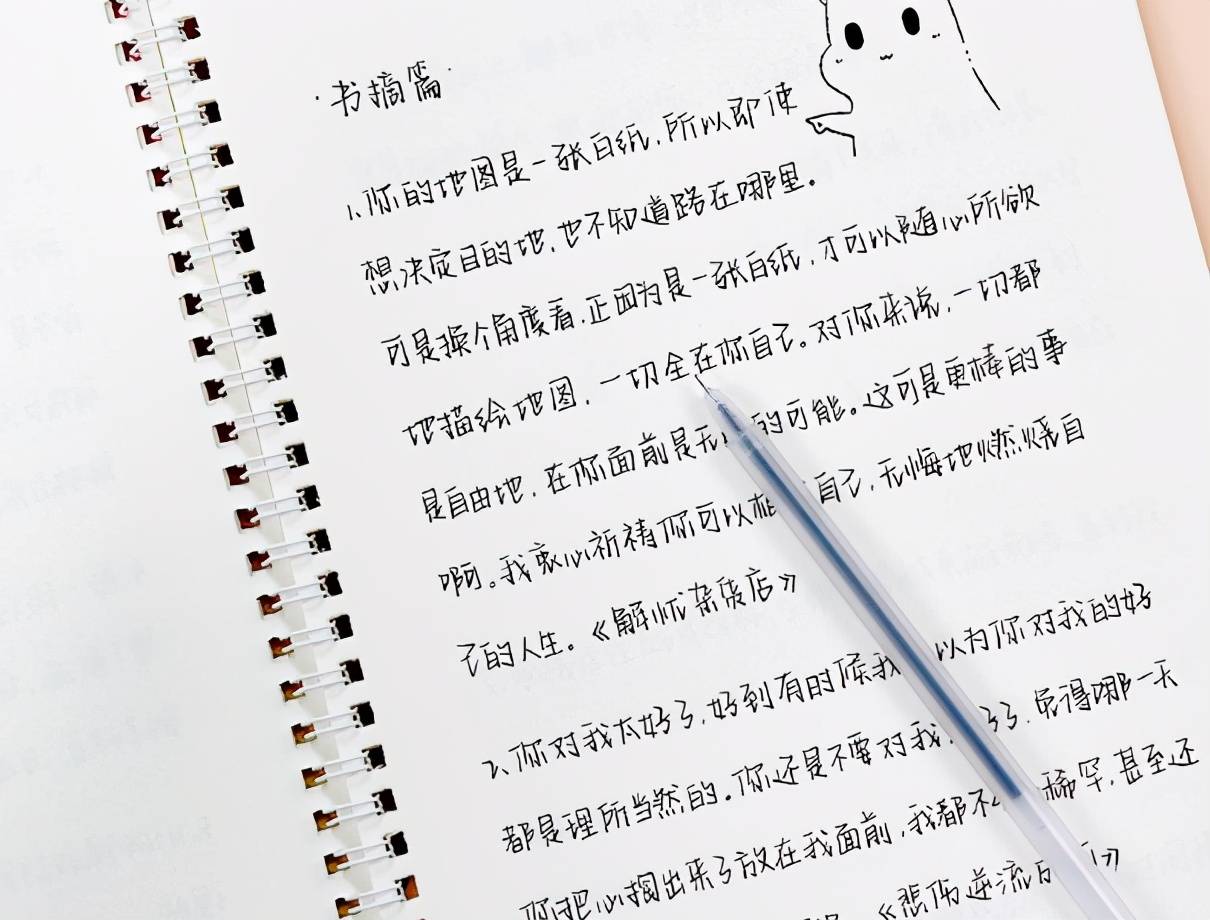 ·书摘篇·
1、你的地图是一张白纸，所以即使
想决定目的地，也不知道路在哪里。
可是换个角度看，正因为是一张白纸，才可以随心所欲
地描绘地图，一切全在你自己。对你来说，一切都
是自由地，在你面前是无 的可能。这可是更棒的事
啊。我衷心祈祷你可以相 自己，无悔地燃烧自
己的人生。《解忧杂货店》
2、你对我太好了，好到有时候我 以为你对我的好
都是理所当然的。你还是不要对我 了，免得哪一天
你把心掏出来了放在我面前，我都不 稀罕，甚至还
《悲伤逆流 》